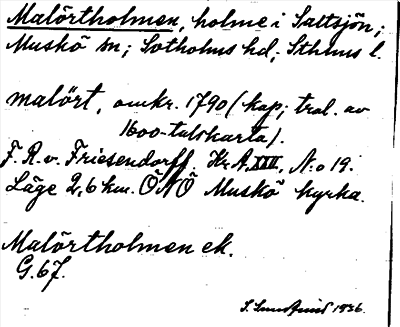 Malörtholmen, holme i Saltsjön;
Muskö sn; Sotholms hd; Sthlms l.
malört, omkr. 1790 (kop; tral. av
1600-talskarta).
F. R. v. Friesendorff. Kr. A. XXII, N:o 19.
Läge 2,6 km. ÖNÖ Muskö kyrka.
Malörtholmen ek.
G. 67.
1936.